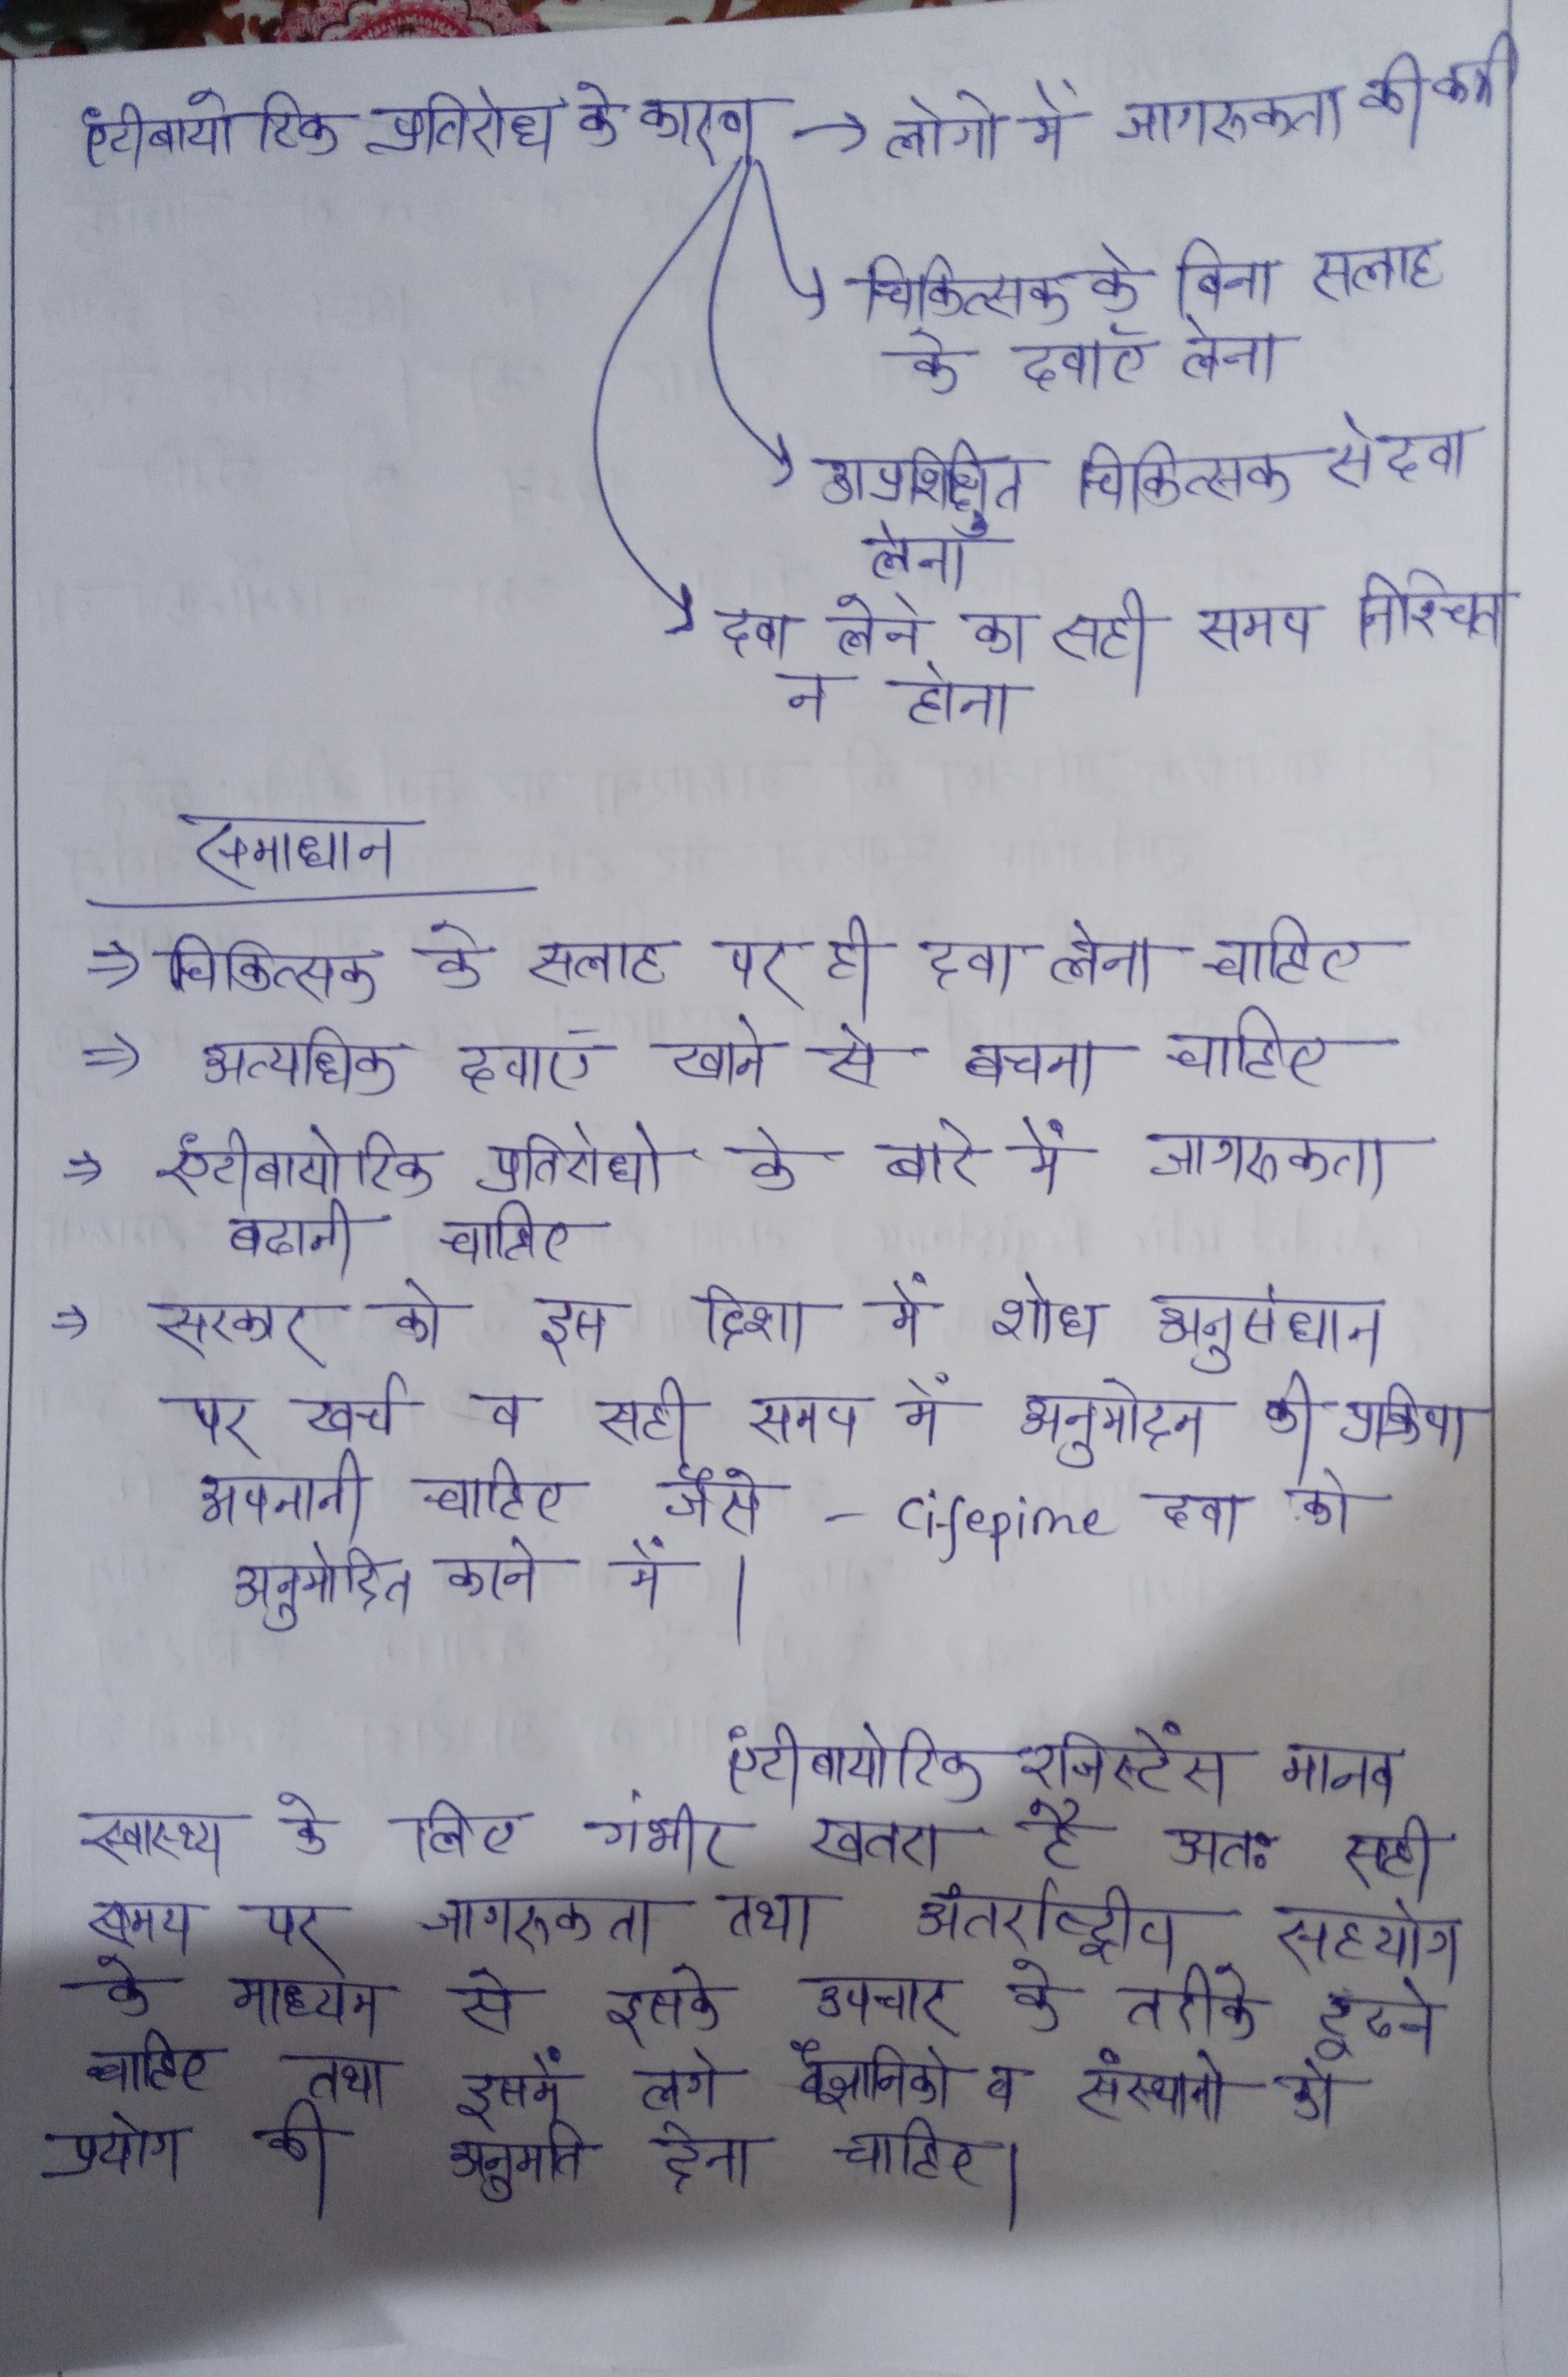 एंटीबायोटिक प्रतिरोध के कारण → लोगो में जागरुकता की कमी
चिकित्सक के बिना सलाह
के दवाएँ लेना
अप्रशिक्षित चिकित्सक से दवा
लेना
दवा लेने का सही समय निश्चित
न होना
समाधान
⇒ चिकित्सक के सलाह पर ही दवा लेना चाहिए
⇒ अत्यधिक दवाएँ खाने से बचना चाहिए
⇒ एंटीबायोटिक प्रतिरोधो के बारे में जागरुकता
बढानी चाहिए
⇒ सरकार को इस दिशा में शोध अनुसंधान
पर खर्च व सही समय में अनुमोदन की प्रक्रिया
अपनानी चाहिए जैसे - Cifepime दवा को
अनुमोदित करने में।
एंटीबायोटिक रजिस्टेंस मानव
स्वास्थ्य के लिए गंभीर खतरा है अतः सही
समय पर जागरुकता तथा अंतर्राष्ट्रीय सहयोग
के माध्यम से इसके उपचार के तरीके ढूढने
चाहिए तथा इसमें लगे वैज्ञानिको व संस्थानो को
प्रयोग की अनुमति देना चाहिए।